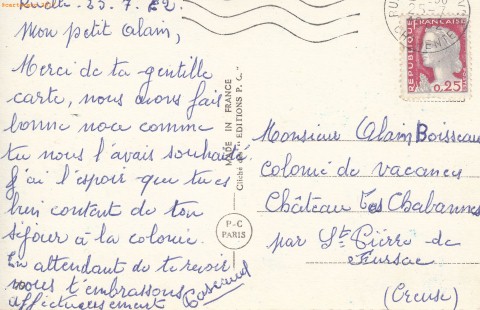 23.7.62.
Mon petit Alain,
Merci de ta gentille
carte, nous avons fait
bonne noce comme
tu nous l'avais souhaité.
J'ai l'espoir que tu es
bien content de ton
séjour à la colonie.
En attendant de te revoir
nous t'embrassons
affectueusement
MADE IN FRANCE
Cliché "EDITIONS P. C."
P-C
PARIS
REPUBLIQUE FRANÇAISE
0,25
Monsieur Alain Boisseau
Colonie de vacances
Château des Chabannes
par St Pierre de
Fursac
(Creuse)